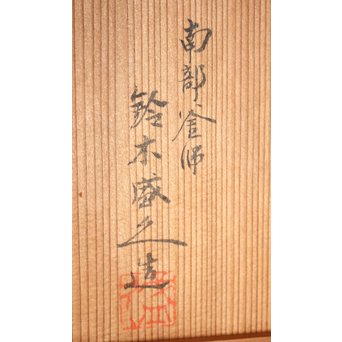 南部釜師
鈴木盛久造